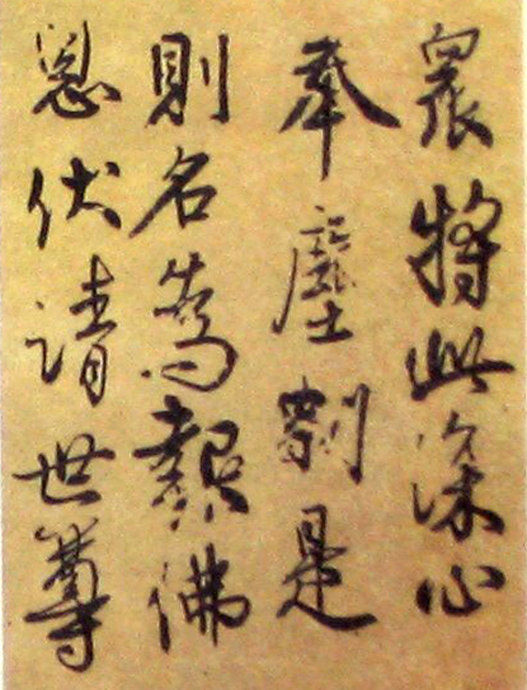 衆將此深心
奉塵剎是
則名為報佛
恩伏請世尊